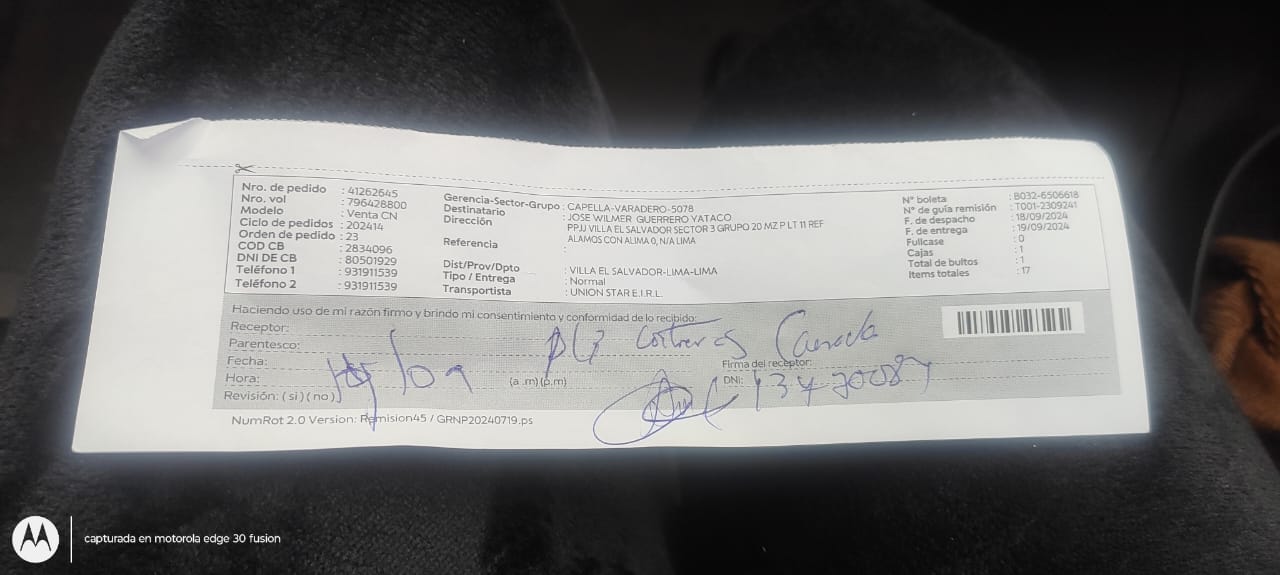 Nro. de pedido : 41262645
Nro. vol : 796428800
Modelo : Venta CN
Ciclo de pedidos : 202414
Orden de pedido : 23
COD CB : 2834096
DNI DE CB : 80501929
Teléfono 1 : 931911539
Teléfono 2 : 931911539
Gerencia-Sector-Grupo : CAPELLA-VARADERO-5078
Destinatario : JOSE WILMER GUERRERO YATACO
Dirección : PPJJ VILLA EL SALVADOR SECTOR 3 GRUPO 20 MZ P LT 11 REF
ALAMOS CON ALIMA 0, N/A LIMA
Referencia :
Dist/Prov/Dpto : VILLA EL SALVADOR-LIMA-LIMA
Tipo / Entrega : Normal
Transportista : UNION STAR E.I.R.L.
N° boleta : B032-6506618
N° de guía remisión : T001-2309241
F. de despacho : 18/09/2024
F. de entrega : 19/09/2024
Fullcase : 0
Cajas : 1
Total de bultos : 1
Items totales : 17
Haciendo uso de mi razón firmo y brindo mi consentimiento y conformidad de lo recibido:
Receptor:
Parentesco:
Fecha:
Hora: (a .m) (p.m)
Revisión: ( si ) ( no )
Firma del receptor:
DNI:
NumRot 2.0 Version: Remision45 / GRNP20240719.ps
capturada en motorola edge 30 fusion